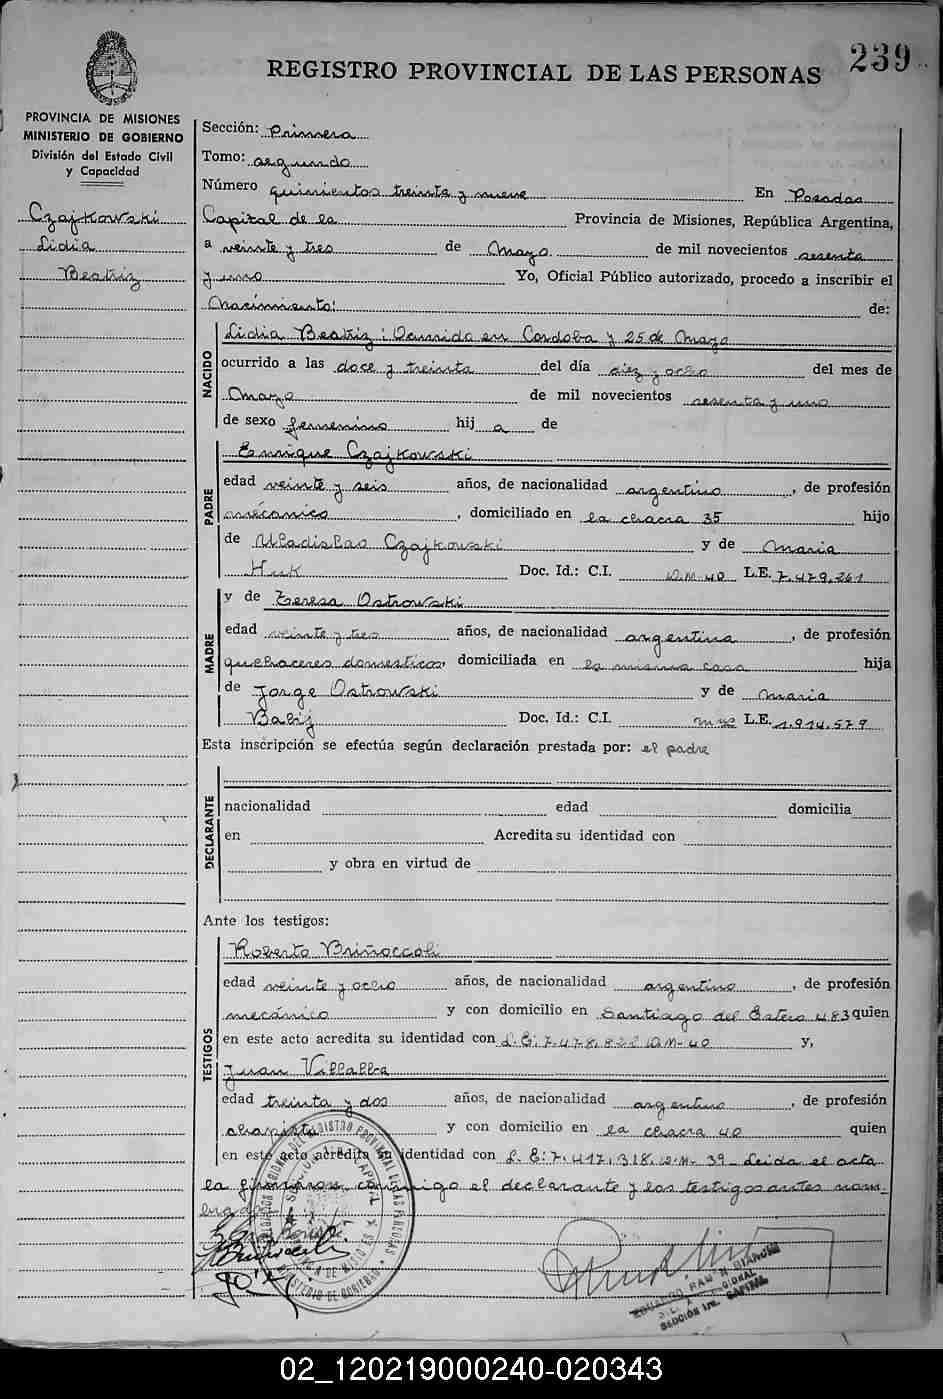 239
REGISTRO PROVINCIAL DE LAS PERSONAS
PROVINCIA DE MISIONES
MINISTERIO DE GOBIERNO
División del Estado Civil
y Capacidad
Czajkowski
Lidia
Beatriz
Sección: Primera
Tomo: segundo
Número quinientos treinta y nueve En Posadas
Capital de la Provincia de Misiones, República Argentina,
a veinte y tres de Mayo de mil novecientos sesenta
y uno Yo, Oficial Público autorizado, procedo a inscribir el
Nacimiento: de:
NACIDO
Lidia Beatriz: Ocurrido en Cordoba y 25 de Mayo
ocurrido a las doce y treinta del día diez y ocho del mes de
Mayo de mil novecientos sesenta y uno
de sexo femenino hij a de
PADRE
Enrique Czajkowski
edad veinte y seis años, de nacionalidad argentino, de profesión
mecánico, domiciliado en la chacra 35 hijo
de Uladislao Czajkowski y de Maria
Huk Doc. Id.: C.I. D.M. 40 L.E. 7.479.261
MADRE
y de Teresa Ostrowski
edad veinte y tres años, de nacionalidad argentina, de profesión
quehaceres domesticos, domiciliada en la misma casa hija
de Jorge Ostrowski y de Maria
Babij Doc. Id.: C.I. L.E. 1.914.579
Esta inscripción se efectúa según declaración prestada por: el padre
DECLARANTE
nacionalidad edad domicilia
en Acredita su identidad con
y obra en virtud de
Ante los testigos:
TESTIGOS
Roberto Briñoccoli
edad veinte y ocho años, de nacionalidad argentino, de profesión
mecánico y con domicilio en Santiago del Estero 483 quien
en este acto acredita su identidad con L.E: 7.478.822 D.M-40 y,
Juan Villalba
edad treinta y dos años, de nacionalidad argentino, de profesión
chapista y con domicilio en la chacra 40 quien
en este acto acredita su identidad con L.E: 7.417.318. D.M. 39_ Leida el acta
la firmaron conmigo el declarante y los testigos antes nom-
brados
EDUARDO RAMON BIANCHI
SECCIÓN 1ra. CAPITAL
02_120219000240-020343